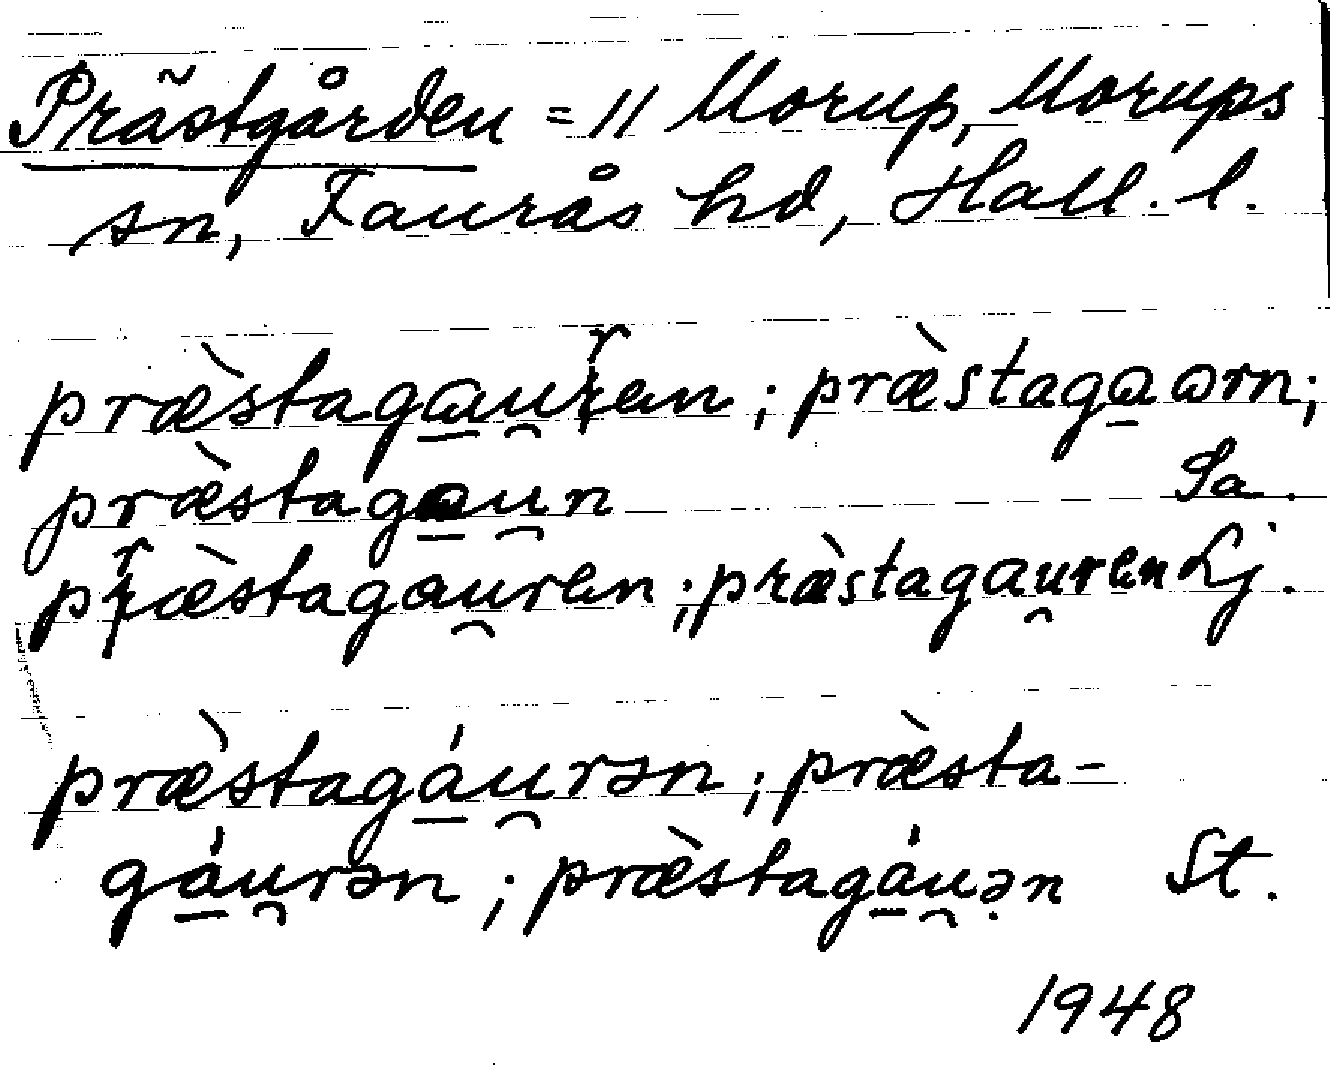 Prästgården = 11 Morup, Morups
sn, Faurås hd, Hall. l.
præ̀staga̱u̯ren ; præ̀staga̱ɷrn;
præ̀staga̱u̯n Sa.
præ̀stagau̯ren ; præ̀stagau̯ren Lj.
præ̀stagá̱u̯rən ; præ̀sta-
gá̱u̯rən ; præ̀stagá̱u̯ə̣n St.
1948